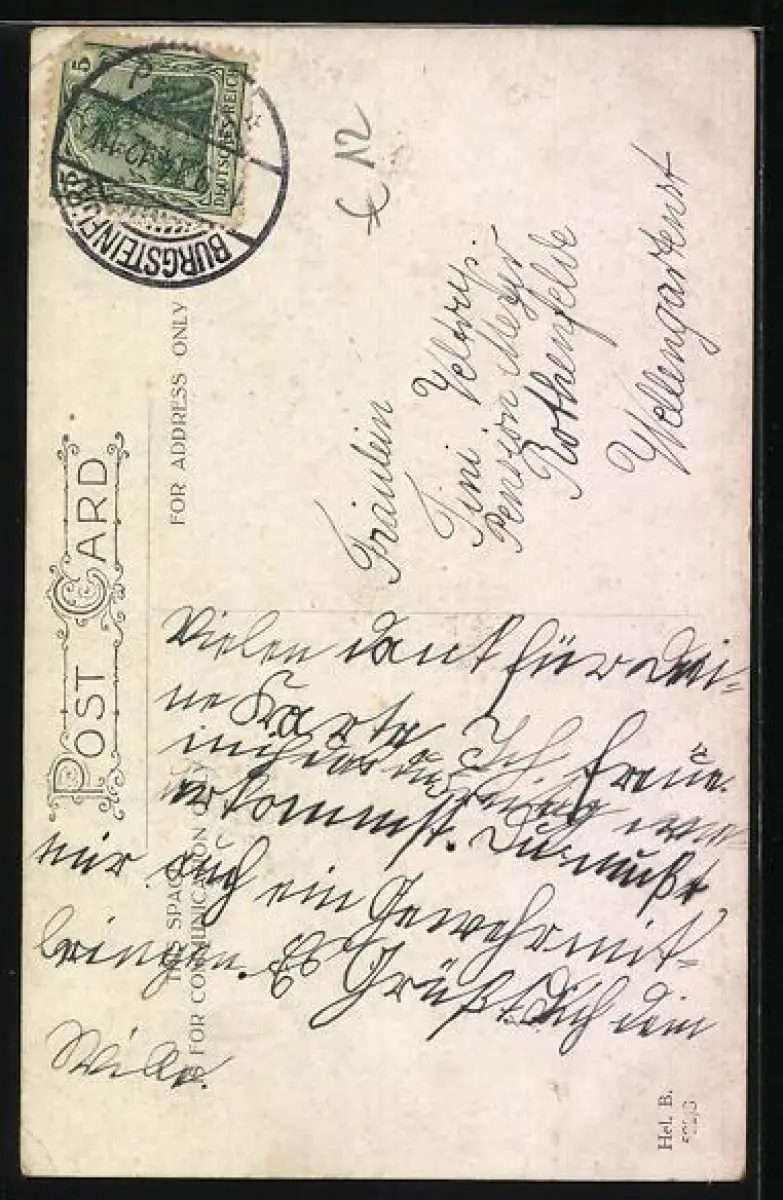 5
DEUTSCHES REICH
BURGSTEINFURT
POST CARD
FOR ADDRESS ONLY
THIS SPACE
FOR COMMUNICATION ONLY
Fräulein
Tini
Pension
Rothenfelde
Wellengartenst
Vielen dank für dei-
ne Karte Ich freue
mich
kommst. Du mußt
mir auch ein Gewehr mit-
bringen. Es Grüßt Dich dein
Wille.
Hel. B.